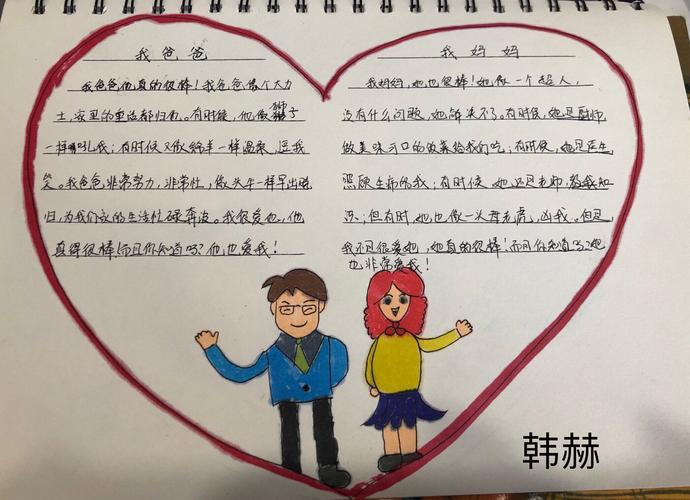 我爸爸
我爸爸他真的很棒！我爸爸像个大力
士，家里的重活都归他。有时候，他像狮子
一样吼我；有时候又像绵羊一样温柔，逗我
笑。我爸爸非常努力，非常忙，像头牛一样早出晚
归，为我们家的生活忙碌奔波。我很爱他，他
真得很棒！而且你知道吗？他也爱我！
我妈妈
我妈妈，她也很棒！她像一个超人，
没有什么问题，她解决不了。有时候，她是厨师
做美味可口的饭菜给我们吃；有时候，她是医生
照顾生病的我；有时候，她还是老师，教我知
识；但有时，她也像一头母老虎，凶我。但是
我还是很爱她，她真的很棒！而且你知道吗？她
也非常爱我！
韩赫